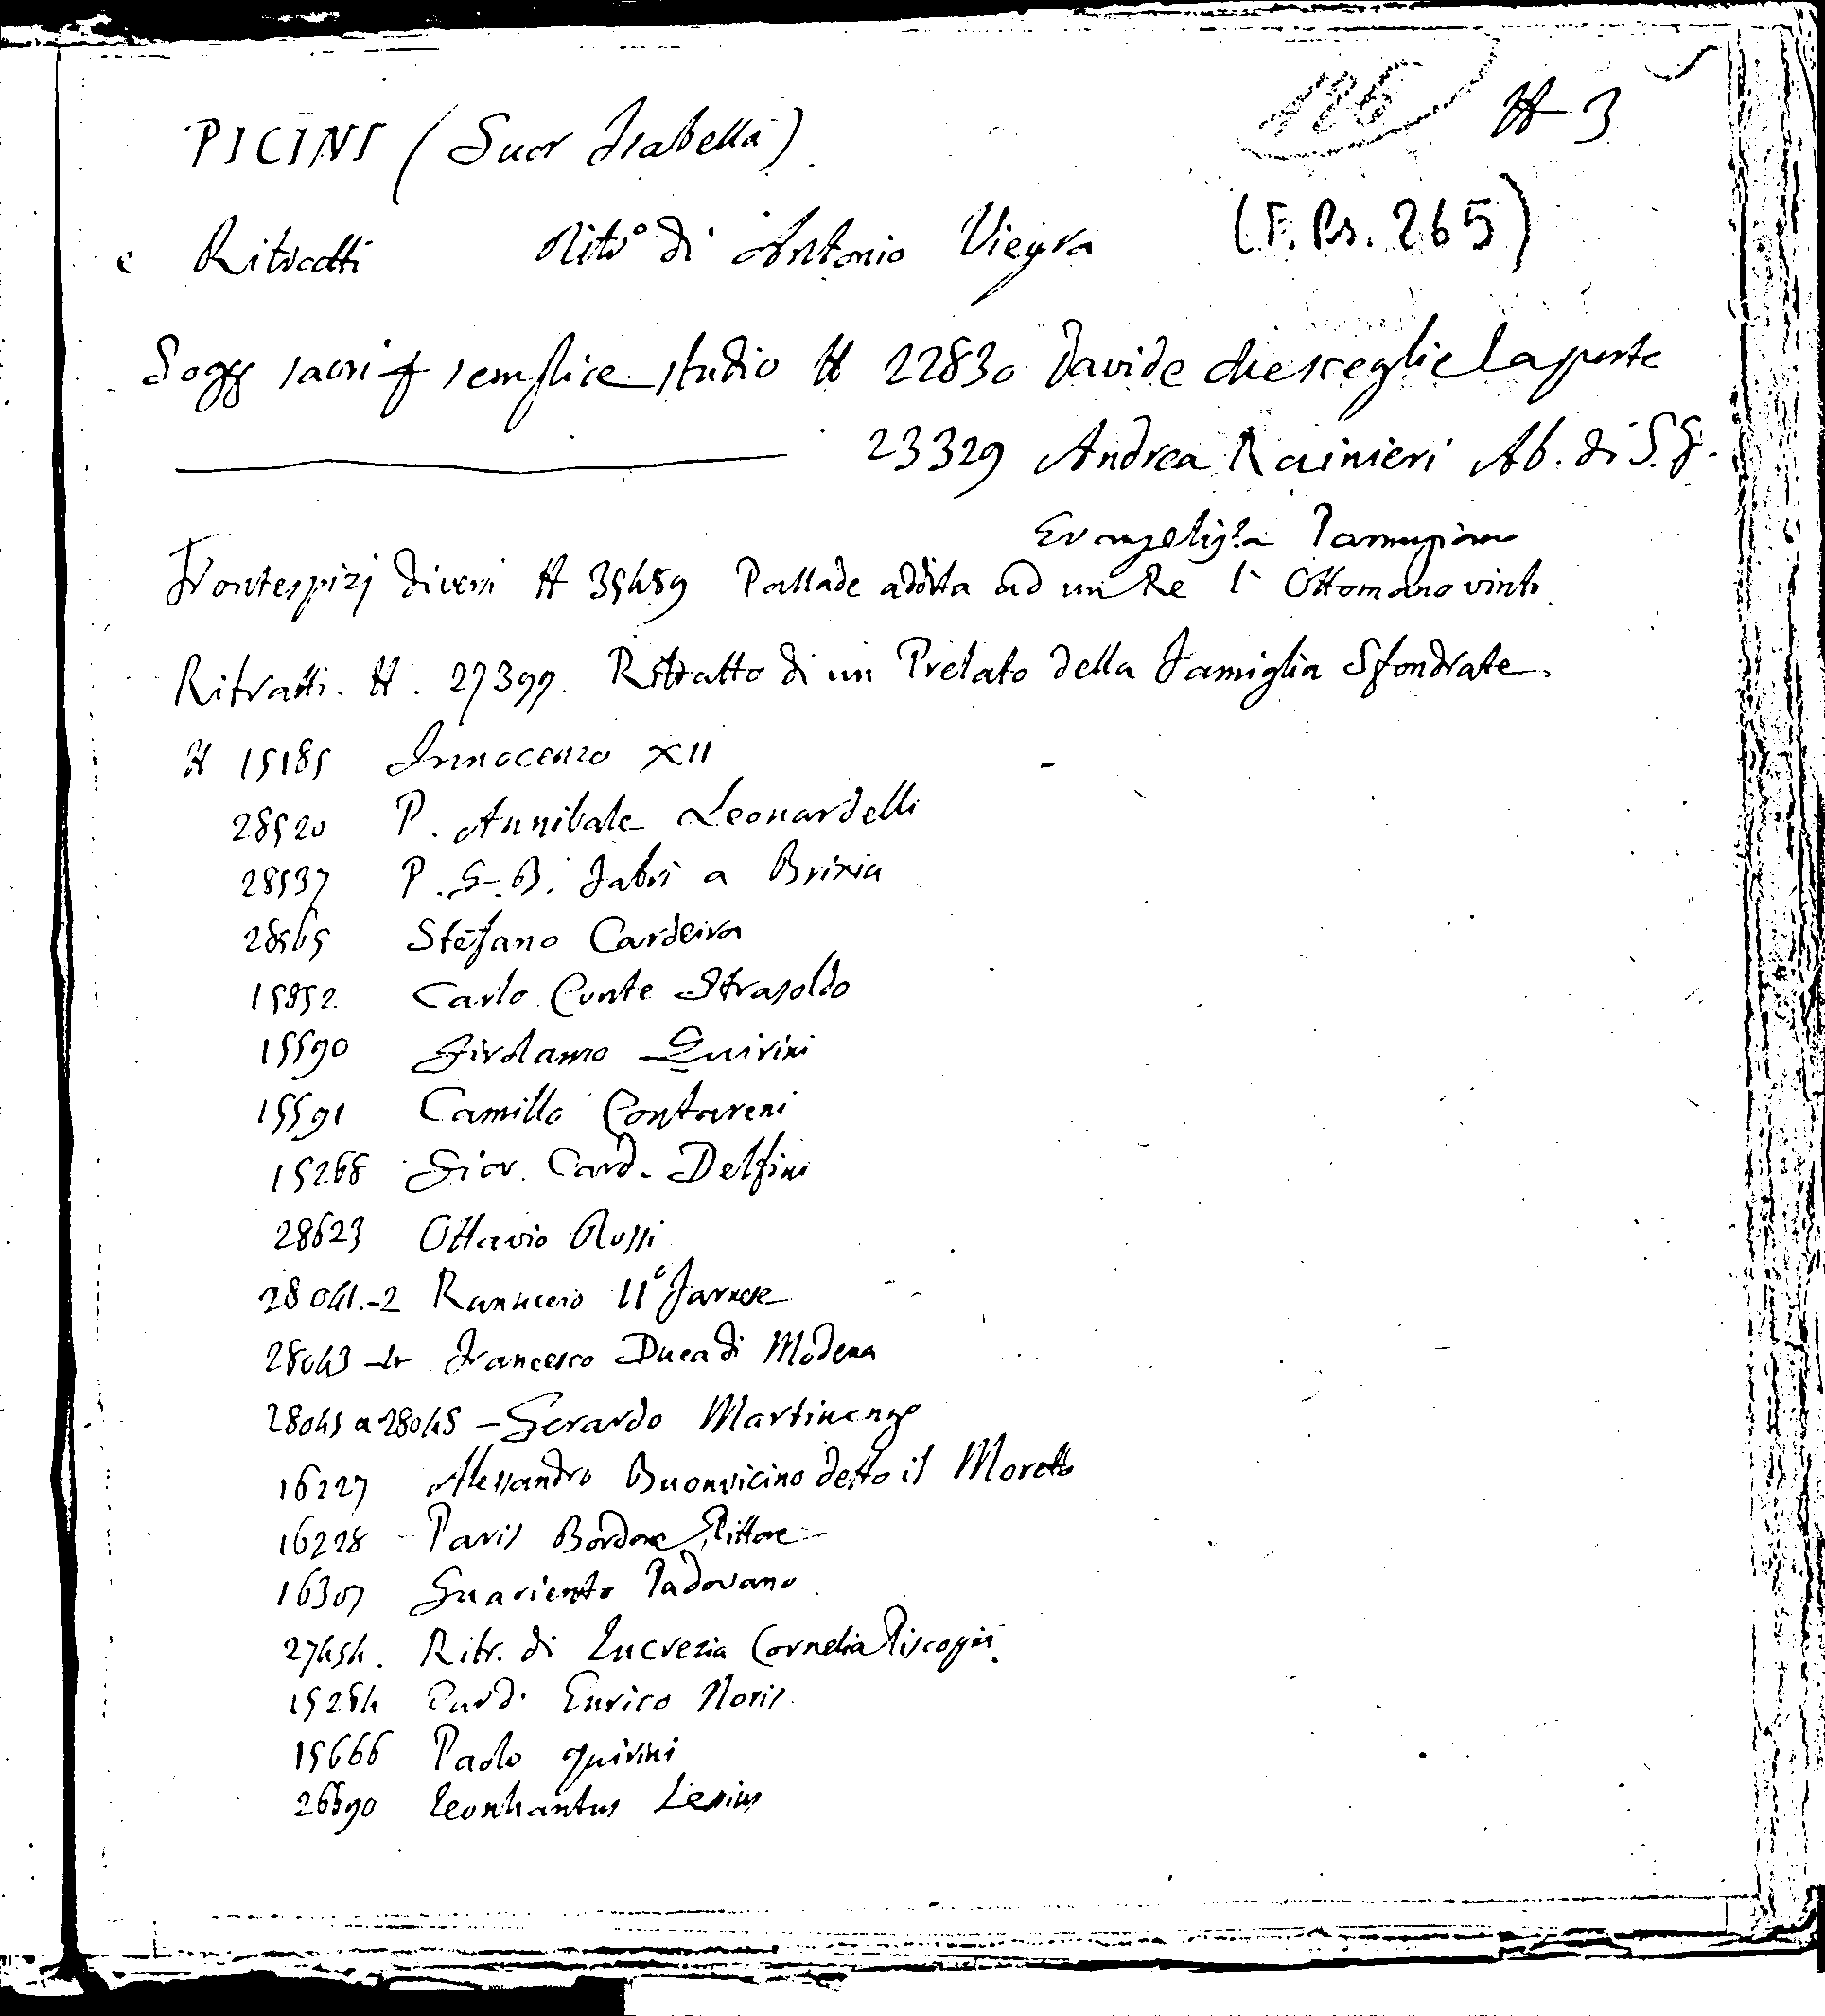 126 H 3
PICINI (Suor Isabella)
e Ritratti Ritro di Antonio Vieyra (F. Ps. 265)
Sogg sacri semplice studio H 22830 Davide che sceglie la peste
23329 Andrea Rainieri Ab. di S. G.
Evangelista Parmigiano
Frontespizj diversi H 35489 Pallade addita ad un Re l'Ottomano vinto.
Ritratti. H. 27399. Ritratto di un Prelato della Famiglia Sfondrate.
H 15185 Innocenzo XII
28520 P. Annibale Leonardelli
28537 P. G. B. Fabri a Brixia
28565 Stefano Cardeira
15852 Carlo Conte Strasoldo
15590 Girolamo Quirini
15591 Camillo Contareni
15268 Giov. Card. Delfini
28623 Ottavio Rossi
28041.-2 Ranuccio II° Farnese
28043-4 Francesco Duca di Modena
28045 a 28048 - Gerardo Martinengo
16227 Alessandro Buonvicino detto il Moretto
16228 Paris Bordone Pittore
16307 Guariento Padovano
27454. Ritr. di Lucrezia Cornelia Piscopia.
15284 Card. Enrico Noris
15666 Paolo Quirini
26590 Leonhantus Lesius